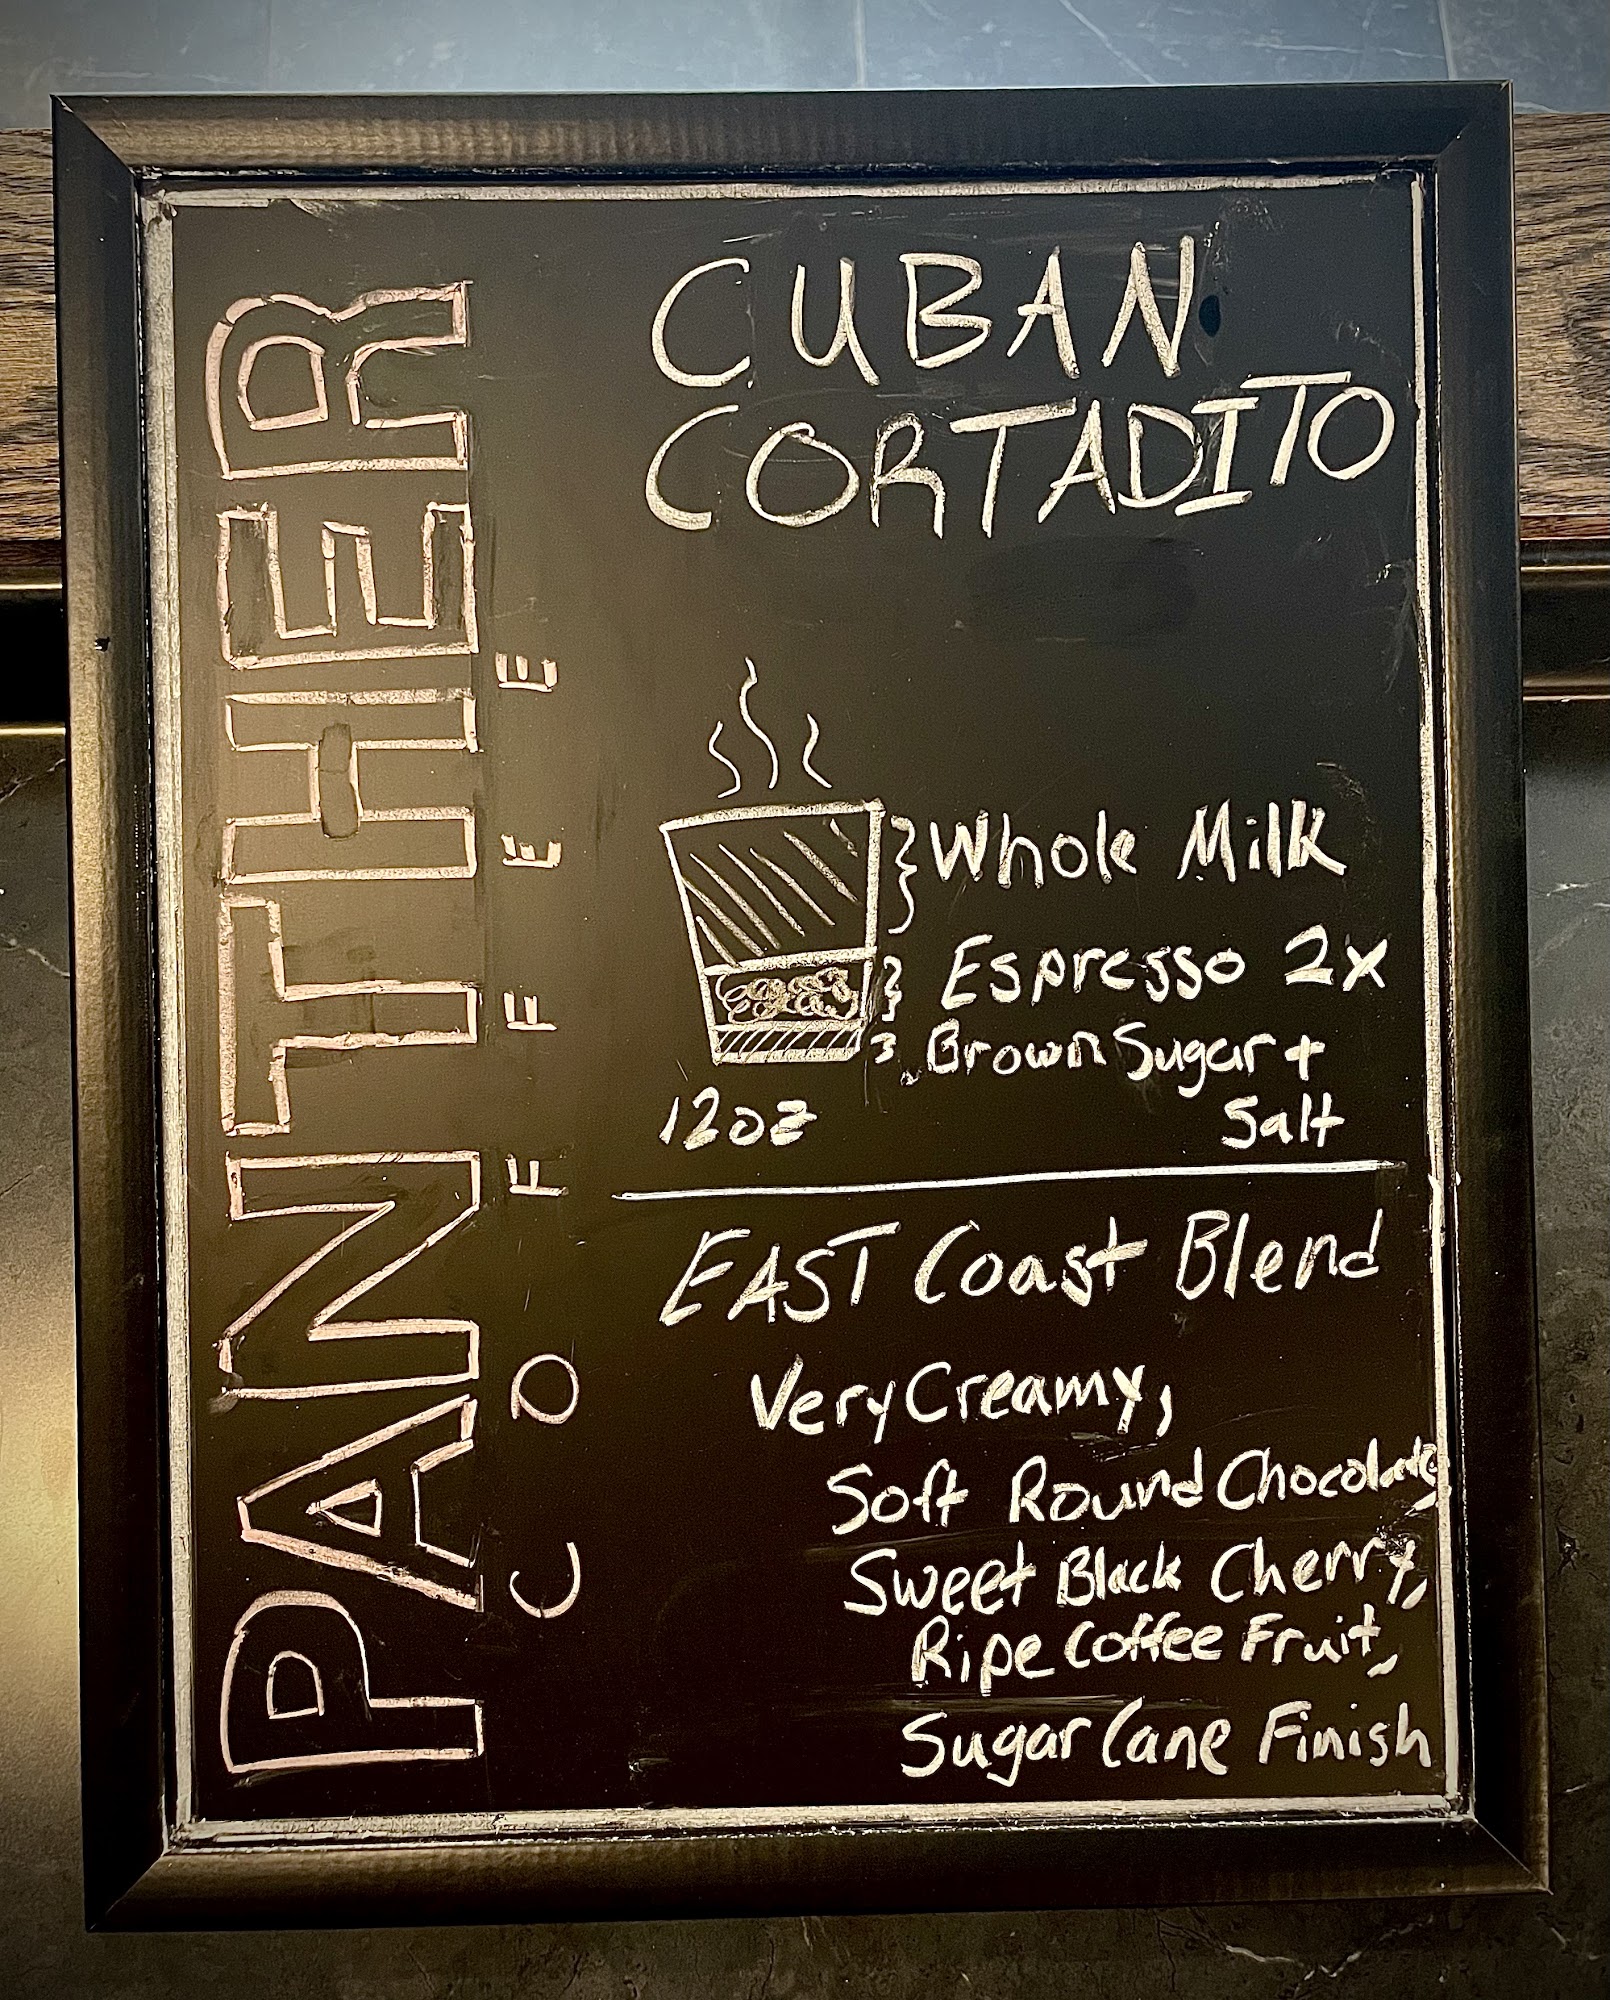 PANTHER
COFFEE
CUBAN
CORTADITO
Whole Milk
Espresso 2x
Brown Sugar +
Salt
12oz
EAST Coast Blend
Very Creamy,
Soft Round Chocolate,
Sweet Black Cherry,
Ripe Coffee Fruit,
Sugar Cane Finish